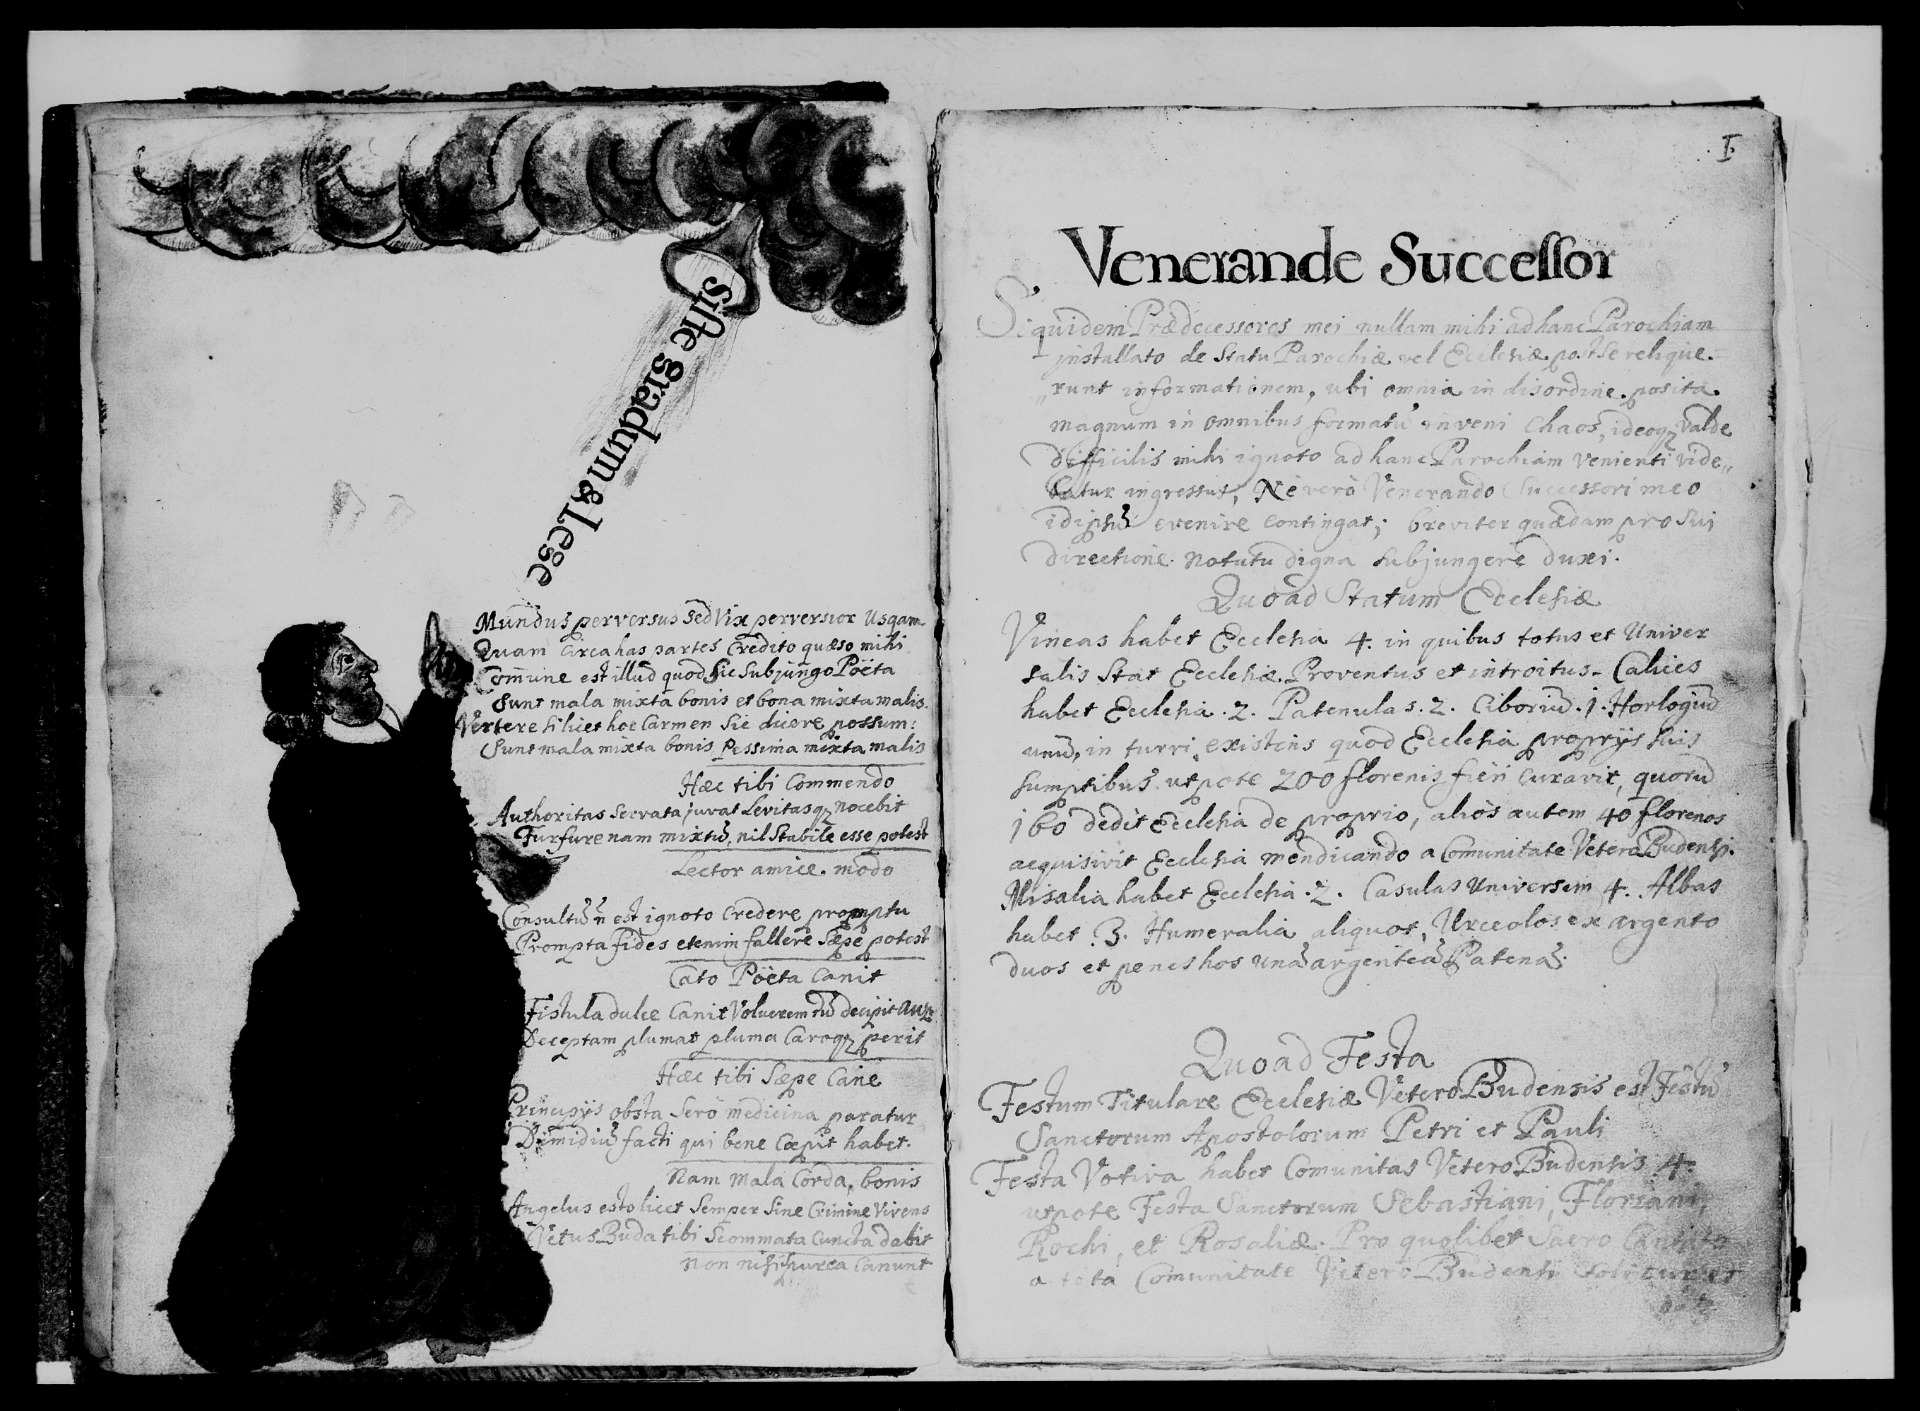 Siste gradum & Lege
Mundus perversus sed Vix perversior Usqam
Quam Circa has partes Credito quæso mihi
Comune est illud quod hic Subjungo Poëta
Sunt mala mixta bonis et bona mixta malis.
Vertere hilicet hoc Carmen Sic dicere possum:
Sunt mala mixta bonis pessima mixta malis
Hæc tibi Commendo
Authoritas Servata juvat Levitasq; nocebit
Furfure nam mixtū, nil Stabile esse potest
Lector amice modo
Consultū n̄ est ignoto Credere promptu
Prompta fides etenim fallere Sæpe potest
Cato Poëta Canit
Fistula dulce Canit Volucrem tū decipit
Deceptam plumat pluma Caroq; perit
Hæc tibi Sæpe Cane
Principijs obsta Serò medicina paratur
Dimidiū facti qui bene Cœpit habet.
Nam mala Corda, bonis
Angelus esto licet Semper Sine Crimine Vivens
Vetus Buda tibi Scommata Cuncta dabit
Non nisi purca Canunt
I.
Venerande Successor
Siquidem Prædecessores mei nullam mihi ad hanc Parochiam
installato de Statu Parochiæ vel Ecclesiæ post Se relique-
„runt informationem, ubi omnia in disordine posita
magnum in omnibus formatū inveni Chaos, ideoq; valde
difficilis mihi ignoto ad hanc Parochiam venienti vide„
batur ingressus, Nè verò Venerando Successori meo
id ipsū evenire Contingat; breviter quædam pro Sui
directione notatu digna Subjungere duxi.
Quoad Statum Ecclesiæ
Vineas habet Ecclesia 4. in quibus totus et Univer
salis Stat Ecclesiæ Proventus et introitus. Calices
habet Ecclesia .2. Patenulas .2. Ciboriū .1. Horlogiū
unū, in turri existens quod Ecclesia proprijs Suis
Sumptibus utpote 200 florenis fieri Curavit, quorū
160 dedit Ecclesia de proprio, aliòs autem 40 florenos
acquisivit Ecclesia mendicando a Comunitate Vetero Budensi.
Misalia habet Ecclesia .2. Casulas Universim 4. Albas
habet .3. Humeralia aliquot, Urceolos ex argento
duos et penes hos unā argenteā Patenā.
Quoad Festa
Festum Titulare Ecclesiæ Vetero Budensis est Festū
Sanctorum Apostolorum Petri et Pauli
Festa Votiva habet Comunitas Vetero Budensis 4.
utpote Festa Sanctorum Sebastiani, Floriani,
Rochi, et Rosaliæ. Pro quolibet Sacro Cantato
a tota Comunitate Vetero Budensi